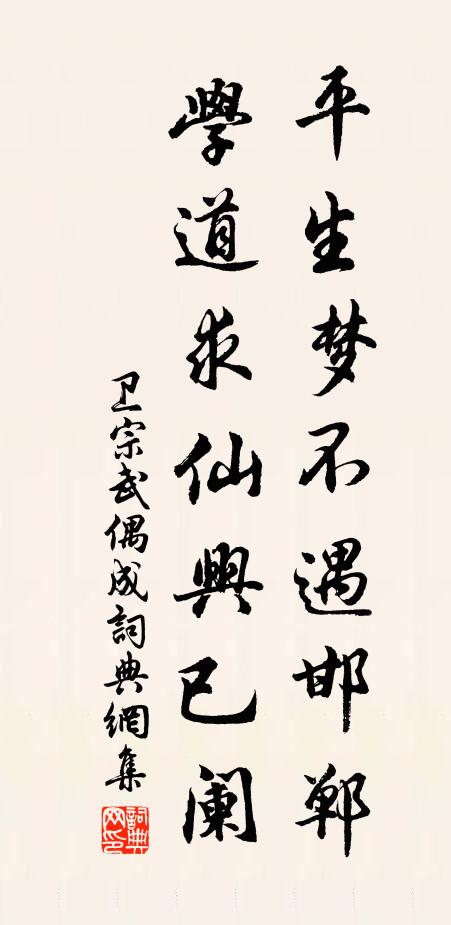 平生梦不遇邯郸
學道求仙興已阑
卫宗武偶成詞典網集
詞典网印